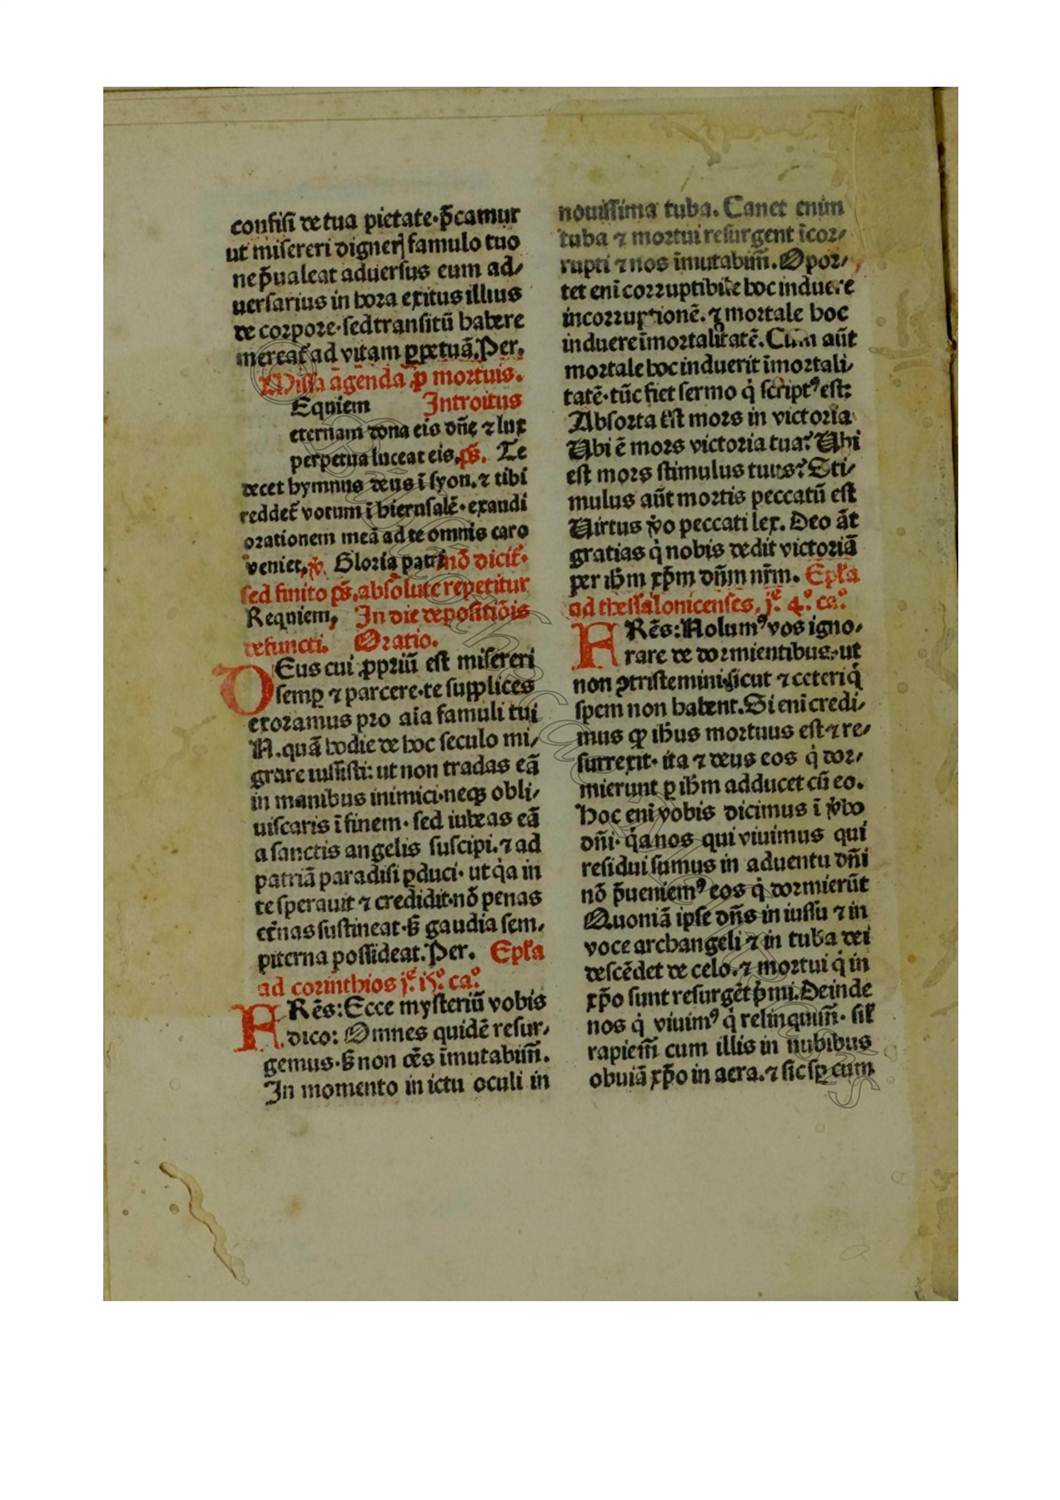 confisi de tua pietate·p̄camur
ut misereri digneꝝ famulo tuo
ne p̄ualeat aduersus eum ad⸗
uersarius in hora exitus illius
de corpore·sed transitū habere
mereat᷒ ad vitam ꝑpetuā.Per.
Missa āgenda ꝓ mortuis.
Equiem Introitus
eternam dona eis dn̄e ⁊ lux
perpetua luceat eis.pš. Te
decet hymnus deus ī syon.⁊ tibi
reddet᷒ votum ī hierusalē·exaudi
orationem meā ad te omnis caro
veniet.℣. Gloria patri nō dicit᷒·
sed finito pš.absolute repetitur
Requiem, In die depositiōis
defuncti. Oratio.
DEus cui ꝓpriū est misereri
semꝑ ⁊ parcere·te supplices
exoramus pro aīa famuli tui
N.quā hodie de hoc seculo mi⸗
grare iussisti: ut non tradas eā
in manibus inimici·neqꝫ obli⸗
uiscaris ī finem· sed iubeas eā
a sanctis angelis suscipi.⁊ ad
patriā paradisi ꝑduci· ut qa in
te sperauit ⁊ credidit·nō penas
et̄nas sustineat·s̄ gaudia sem⸗
piterna possideat.Per. Ep̄la
ad corinthios j͛.15.͛ ca.͛
FRēs:Ecce mysteriū vobis
dico: Omnes quidē resur⸗
gemus·s̄ non oēs īmutabim̄.
In momento in ictu oculi in
nouissima tuba. Canet enim
tuba ⁊ mortui resurgent īcor⸗
rupti ⁊ nos īmutabim̄.Opor⸗
tet eni corruptibile hoc induere
incorruptionē.⁊ mortale hoc
induere īmortalitatē.Cum aūt
mortale hoc induerit īmortali⸗
tatē·tūc fiet sermo q̇ scriptꝰ est:
Absorta est mors in victoria
Ubi ē mors victoria tua? Ubi
est mors stimulus tuus? Sti⸗
mulus aūt mortis peccatū est
Uirtus v̄o peccati lex. Deo āt
gratias q̇ nobis dedit victoriā
per ihm̄ xp̄m dn̄m nr̄m. Ep̄la
ad thessalonicenses. j.͛ 4.͛ ca.͛
FRēs:Nolumꝰ vos igno⸗
rare de dormientibus·ut
non ꝯtristemini·sicut ⁊ ceteri q̇
spem non habent.Si eni credi⸗
mus qꝫ ihūs mortuus est·⁊ re⸗
surrexit· ita ⁊ deus eos q̇ dor⸗
mierunt ꝑ ihm̄ adducet cū eo.
Hoc eni vobis dicimus ī v̄bo
dn̄i· q̇a nos qui viuimus qui
residui sumus in aduentu dn̄i
nō p̄ueniemꝰ eos q̇ dormierūt
Quoniā ipse dn̄s in iussu ⁊ in
voce archangeli ⁊ in tuba dei
descēdet de celo.⁊ mortui q̇ in
xp̄o sunt resurgēt p̄mi.Deinde
nos q̇ viuimꝰ q̇ relinquim̄· sil̄
rapiem̄ cum illis in nubibus
obuiā xp̄o in aera.⁊ sic sꝑ cum